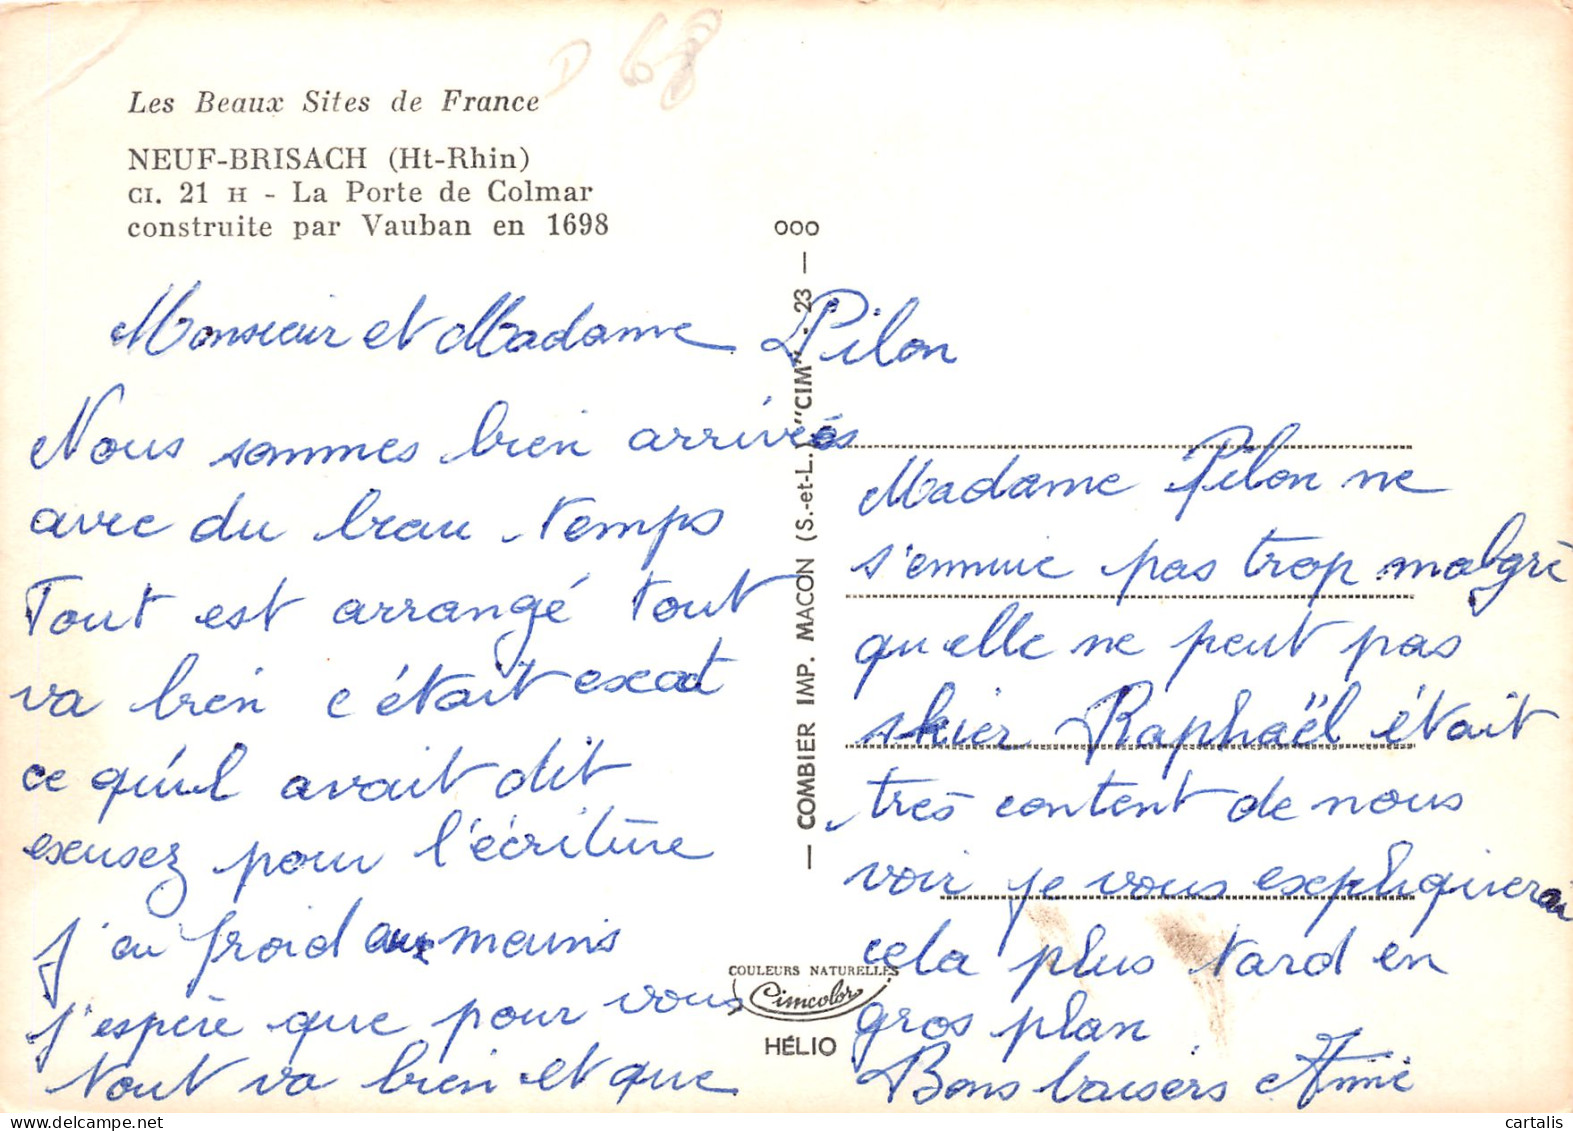 D 68
Les Beaux Sites de France
NEUF-BRISACH (Ht-Rhin)
CI. 21 H - La Porte de Colmar
construite par Vauban en 1698
Monsieur et Madame Pilon
Nous sommes bien arrivés
avec du beau temps
Tout est arrangé tout
va bien c'était exact
ce qu'il avait dit
excusez pour l'écriture
j'ai froid aux mains
j'espère que pour vous
tout va bien et que
OOO
— COMBIER IMP. MACON (S.-et-L.) "CIM" - 23 —
COULEURS NATURELLES
Cimcolor
HÉLIO
Madame Pilon ne
s'ennuie pas trop malgré
qu'elle ne peut pas
skier Raphaël était
très content de nous
voir je vous expliquerai
cela plus tard en
gros plan
Bons baisers Aimé
cartalis